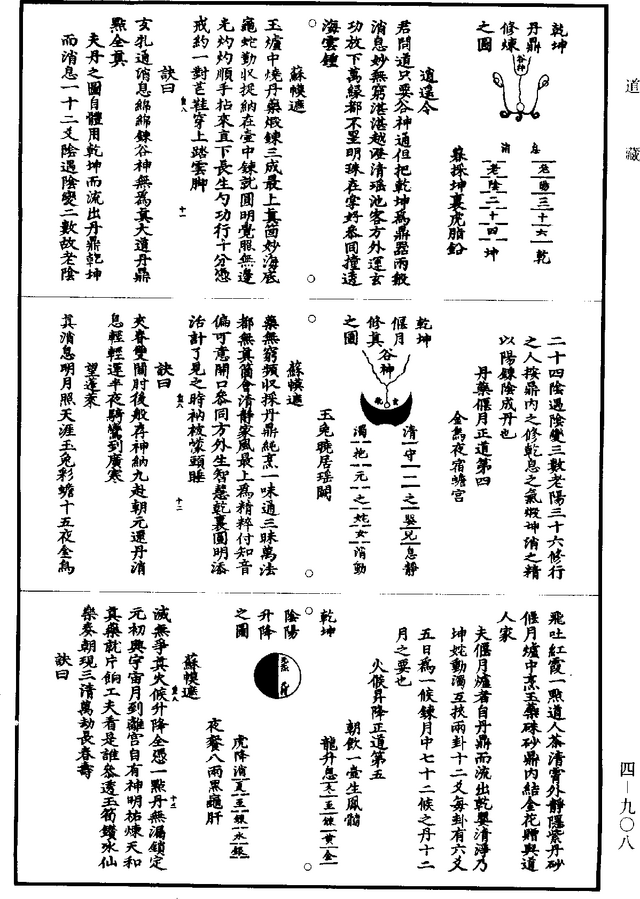 道藏
乾坤
丹鼎
修煉
之圖
谷神
老陽三十六乾
消
老陰二十四坤
採坤裏虎脂鉛
逍遥令
君問道只要谷神通但把乾坤為鼎器兩般
消息妙無窮湛湛越澄清瑶池客方外運玄
功放下萬緣都不罣明珠在掌好參同撞透
海雲鍾
蘇幙遮
玉爐中燒丹藥煅鍊三成最上真箇妙海底
龜蛇勤收捉納在壺中鍊就圓明覺照無邊
光灼灼順手拈來直下長生勺功行十分憑
戒約一對芒鞋穿上踏雲脚
十一
訣曰
玄牝通消息綿綿鍊谷神無為真大道丹鼎
點全真
夫丹之圖自體用乾坤而流出丹鼎乾坤
而消息一十二爻陰遇陰變二數故老陰
二十四陰遇陰變三數老陽三十六修行
之人按鼎内之修乾息之氣煅坤消之精
以陽鍊陰成丹也
丹藥偃月正道第四
金烏夜宿蟾宫
乾坤
偃月
修真
之圖
谷神
清守一之嬰兒息静
濁抱元之姹女消動
玉兔曉居瑶闕
蘇幙遮
藥無窮頻収採丹鼎純烹一味通三昧萬法
都無真箇會清静家風最上為精粹付知音
偏可意開口參同方外生智慧乾裏圓明添
活計了見之時衲被蒙頭睡
十二
訣曰
夾脊雙關肘後般存神納九赴朝元還丹消
息輕輕運半夜騎鸞到廣寒
望蓬萊
真消息明月照天涯玉兔彩蟾十五夜金烏
飛吐紅霞一點道人茶清霄外静隱紫丹砂
偃月爐中烹玉藥硃砂鼎内結金花贈與道
人家
夫偃月爐者自丹鼎而流出乾與清淨乃
坤姹動濁互扶兩卦十二爻每卦有六爻
五日為一候鍊月中七十二候之丹十二
月之要也
火候昇降正道第五
朝飲一壺生鳳髓
龍升息冬至鍊黄金
乾坤
陰陽
升降
之圖
虎降消夏至鍊水銀
夜餐八兩黑龜肝
蘇幙遮
滅無爭真火候升降全憑一點丹無漏鎖定
元初興宇宙月到離宫自有神明祐煉天和
真藥就片餉工夫看是誰參透玉筍鑽氷仙
樂奏朝現三清萬劫長春壽
十三
訣曰
四—九〇八